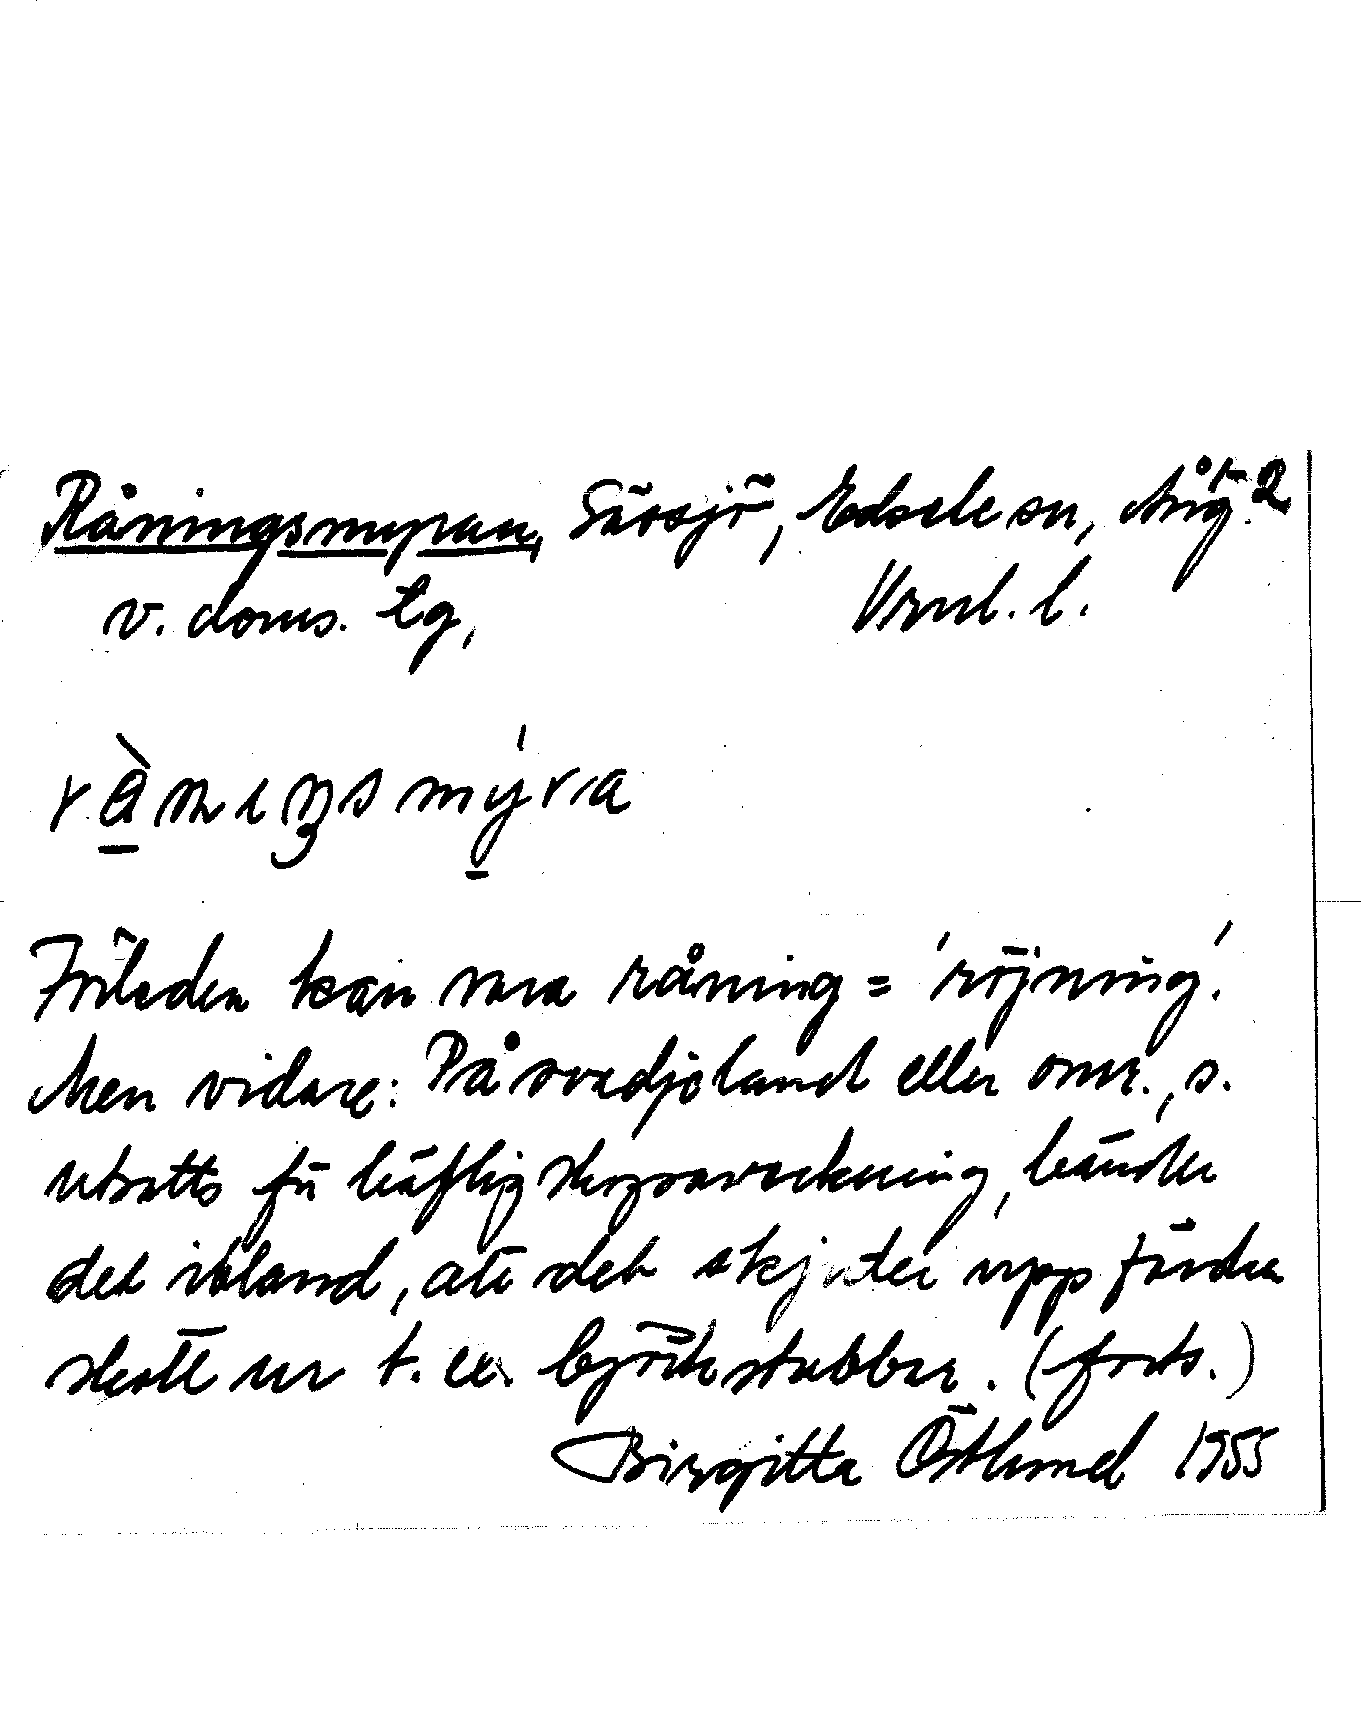 Råningsmyran, Särsjö, Edsele sn, Ång. 2
v. doms. tg, Vrnl. l.
rånɩŋsmýra
Förleden kan vara råning = 'röjning'.
Men vidare: På svedjeland eller omr., s.
utsatts för häftig skogsavverkning, händer
det ibland, att det skjuter upp färska
skott ur t. ex. björkstubbar. (forts.)
Birgitta Östlund 1955